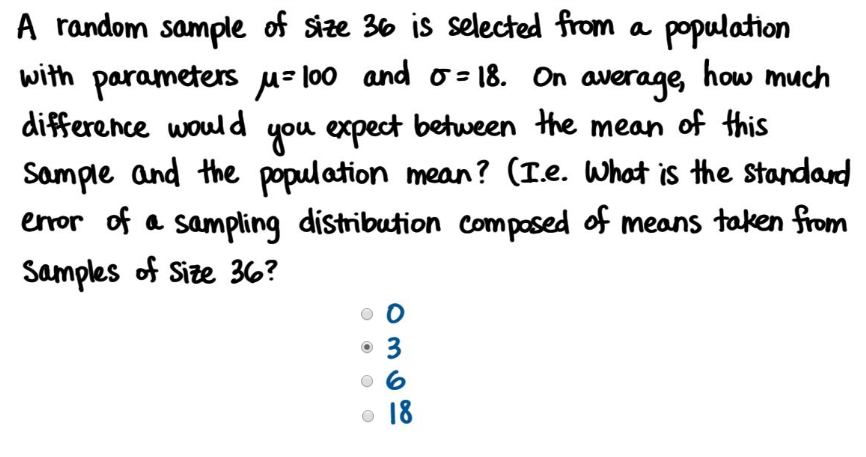 A random sample of size 36 is selected from a population
with parameters μ=100 and σ=18. On average, how much
difference would you expect between the mean of this
Sample and the population mean? (I.e. What is the standard
error of a sampling distribution composed of means taken from
Samples of Size 36?
0
3
6
18